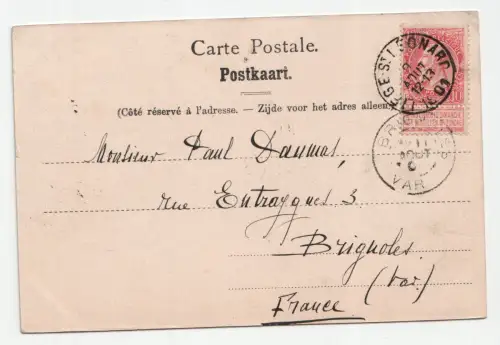 Carte Postale.
Postkaart.
(Côté réservé à l'adresse. — Zijde voor het adres alleen)
LIÈGE-ST LÉONARD
9
AOUT
12-13
01
BRIGNOLES
11
AOUT
VAR
Monsieur Paul Daumas,
rue Entraygues 3
Brignoles
(Var)
France